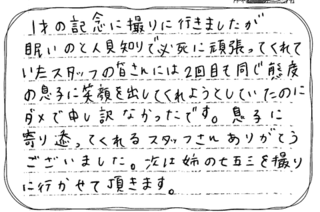 1才の記念に撮りに行きましたが
眠いのと人見知りで必死に頑張ってくれて
いたスタッフの皆さんには2回目も同じ態度
の息子に笑顔を出してくれようとしていたのに
ダメで申し訳なかったです。息子に
寄り添ってくれるスタッフさんありがとう
ございました。次は姉の七五三を撮り
に行かせて頂きます。